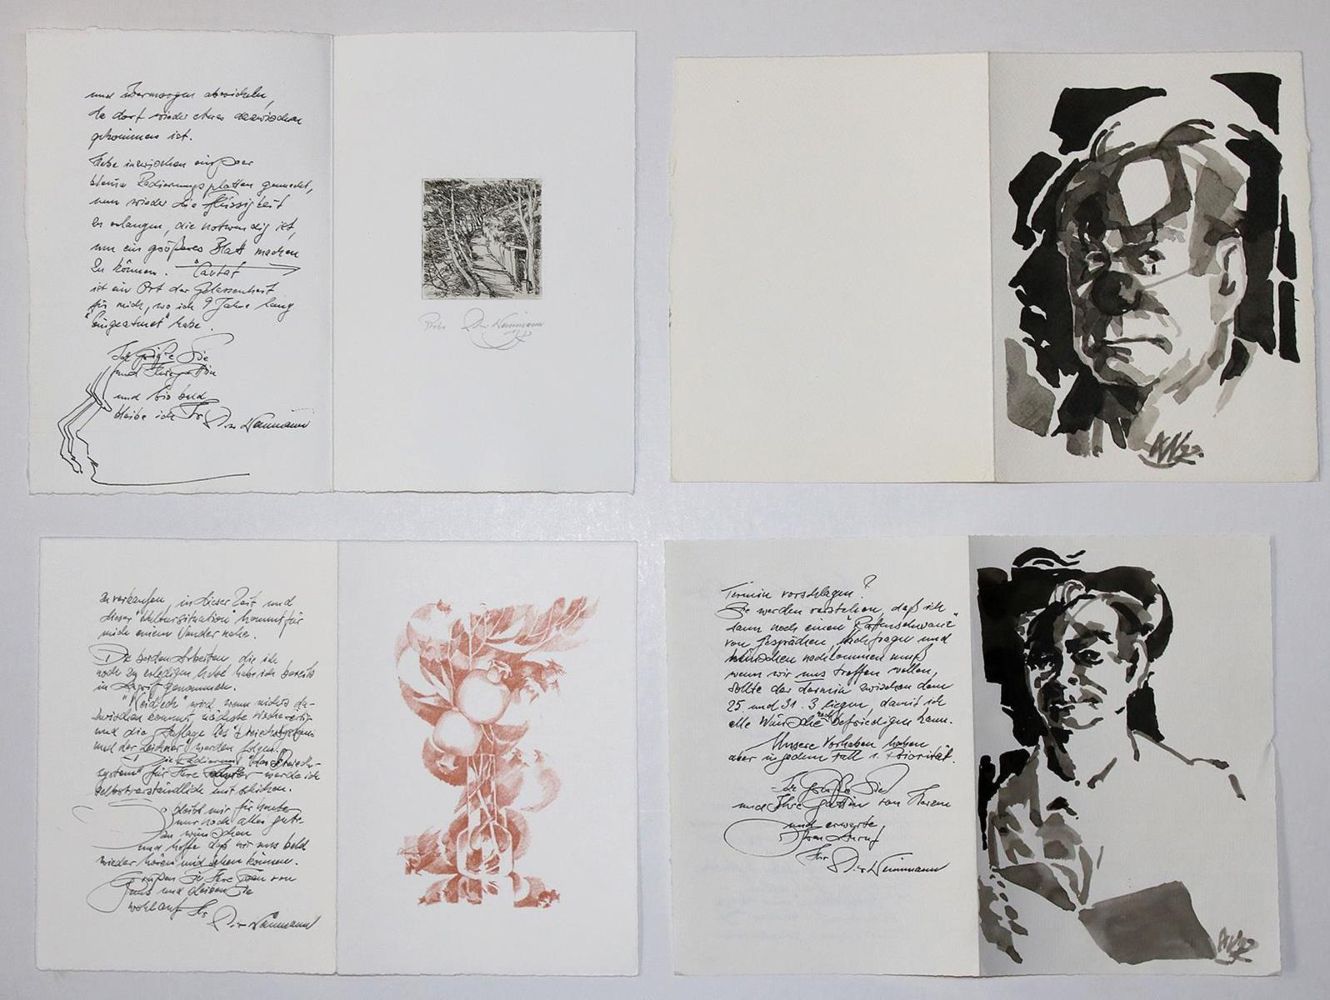 und übermorgen abwickeln,
da dort wieder etwas dazwischen
gekommen ist.
Habe inzwischen ein paar
kleine Radierungsplatten gemacht,
um wieder die Flüssigkeit
zu erlangen, die notwendig ist,
um ein größeres Blatt machen
zu können.
ist ein Ort der Gelassenheit
für mich, wo ich 9 Jahre lang
"eingeatmet" habe.
Ich grüße Sie
und Ihre Gattin
und bis bald
bleibe ich Ihr
zu verkaufen, in dieser Zeit und
dieser Weltursituation kommt für
mich einem Wunder nahe.
Die beiden Arbeiten die ich
noch zu erledigen habe habe ich bereits
in Angriff genommen.
wird, wenn nichts da-
zwischen kommt, nächste Woche fertig
und die Auflage des
und der Zeichner werden folgen.
für Ihre werde ich
selbstverständlich mit schicken.
bleibt mir für heute
nur noch alles gute
zu wünschen
und hoffe daß wir uns bald
wieder hören und sehen können.
Grüßen Sie Ihre Frau von
uns und bleiben Sie
wohlauf Ihr
Termin vorschlagen?
Sie werden verstehen, daß ich
dann noch einen "Rattenschwanz"
von Gesprächen, Nachfragen und
Wünschen nachkommen muß
wenn wir uns treffen wollen,
sollte der Termin zwischen dem
25 und 31. 3 liegen, damit ich
alle Wünsche befriedigen kann.
Unsere Vorhaben haben
aber in jedem Fall 1. Priorität.
Ich grüße Sie
und Ihre Gattin von Herzen
und erwarte
Ihren Anruf
Ihr